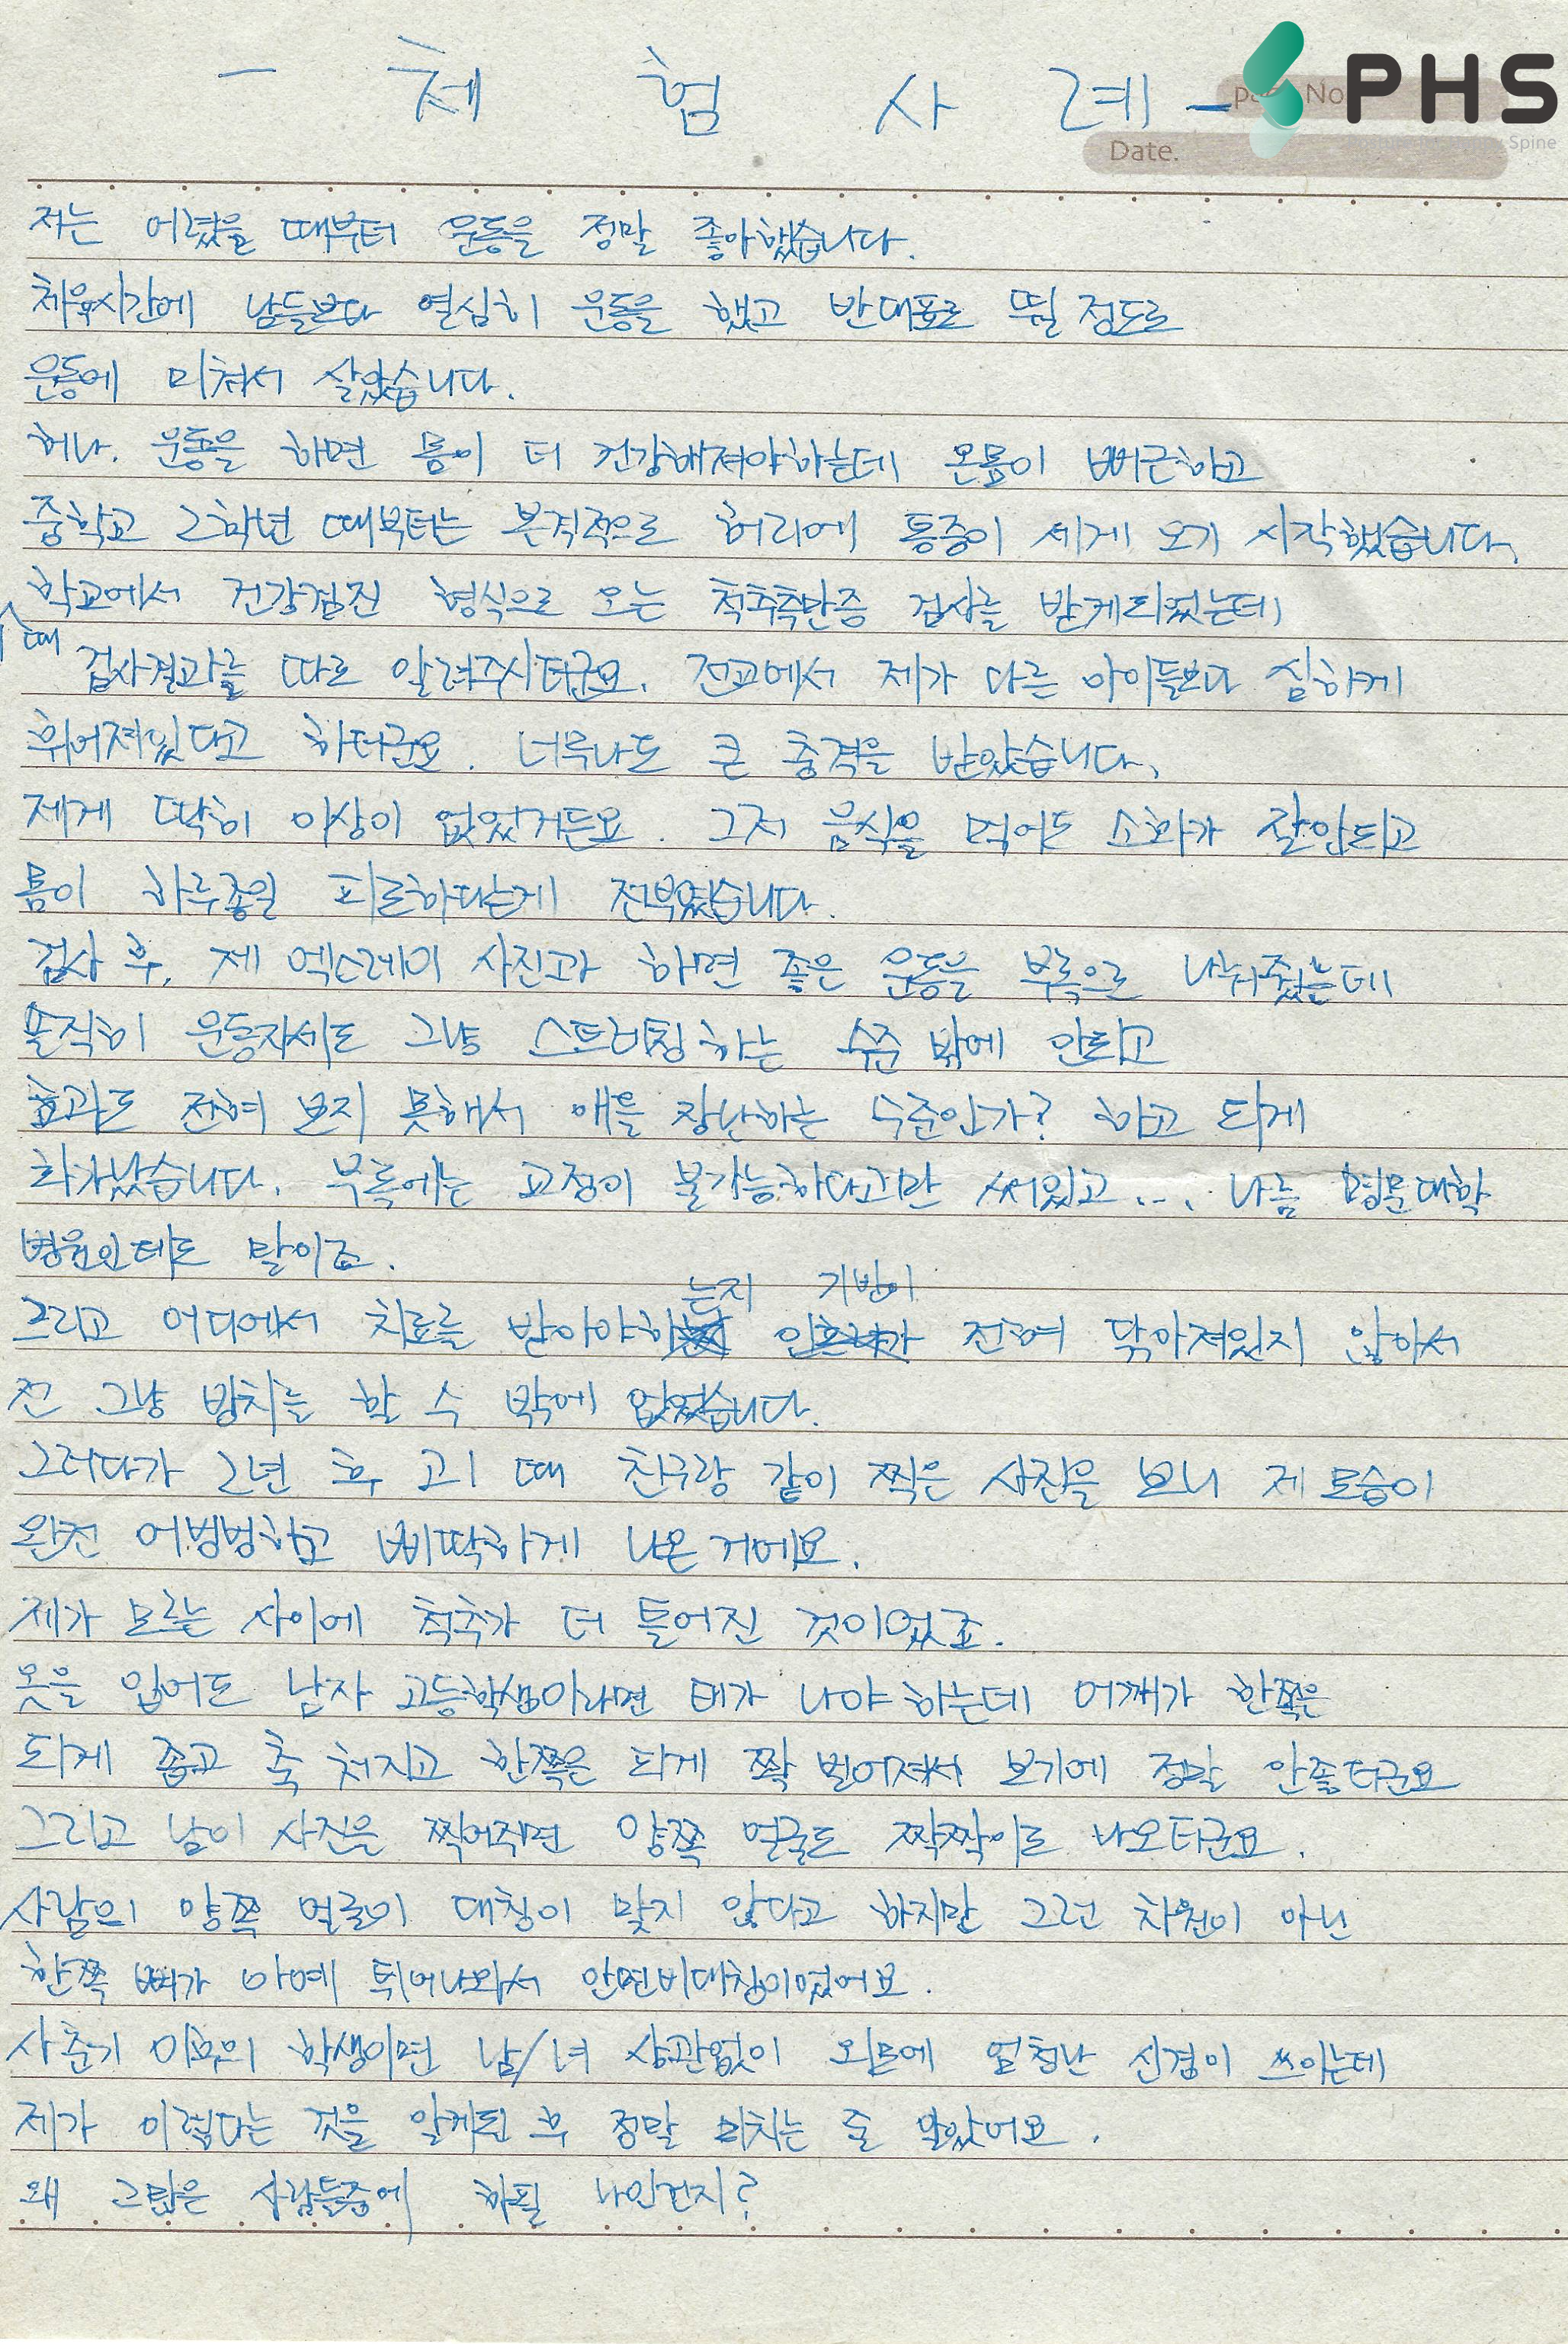 - 체 험 사 례 -
PHS
Date.
Spine
저는 어렸을 때부터 운동을 정말 좋아했습니다.
체육시간에 남들보다 열심히 운동을 했고 반대표로 뛸 정도로
운동에 미쳐서 살았습니다.
허나. 운동을 하면 몸이 더 건강해져야하는데 온몸이 뻐근하고
중학교 2학년 때부터는 본격적으로 허리에 통증이 세게 오기 시작했습니다.
학교에서 건강검진 형식으로 오는 척추측만증 검사를 받게되었는데
때
검사결과를 따로 알려주시더군요. 전교에서 제가 다른 아이들보다 심하게
휘어져있다고 하더군요. 너무나도 큰 충격을 받았습니다.
제게 딱히 이상이 없었거든요. 그저 음식을 먹어도 소화가 잘안되고
몸이 하루종일 피로하다는게 전부였습니다.
검사 후, 제 엑스레이 사진과 하면 좋은 운동을 부록으로 나눠줬는데
솔직히 운동자세도 그냥 스트레칭하는 수준 밖에 안되고
효과도 전혀 보지 못해서 애들 장난하는 수준인가? 하고 되게
화가났습니다. 부록에는 교정이 불가능하다고만 써있고... 나름 명문대학
병원인데도 말이죠.
는지 기반이
그리고 어디에서 치료를 받아야하 전혀 닦아져있지 않아서
전 그냥 방치를 할 수 밖에 없었습니다.
그러다가 2년 후 고1 때 친구랑 같이 찍은 사진을 보니 제 모습이
완전 어벙벙하고 삐딱하게 나온 거에요.
제가 모르는 사이에 척추가 더 틀어진 것이었죠.
옷을 입어도 남자 고등학생이라면 태가 나야 하는데 어깨가 한쪽은
되게 좁고 축 처지고 한쪽은 되게 쫙 벌어져서 보기에 정말 안좋더군요
그리고 남이 사진을 찍어주면 양쪽 얼굴도 짝짝이로 나오더군요.
사람의 양쪽 얼굴이 대칭이 맞지 않다고 하지만 그런 차원이 아닌
한쪽 뼈가 아예 튀어나와서 안면비대칭이었어요.
사춘기 이후의 학생이면 남/녀 상관없이 외모에 엄청난 신경이 쓰이는데
제가 이렇다는 것을 알게된 후 정말 미치는 줄 알았어요.
왜 그많은 사람들중에 하필 나인건지?